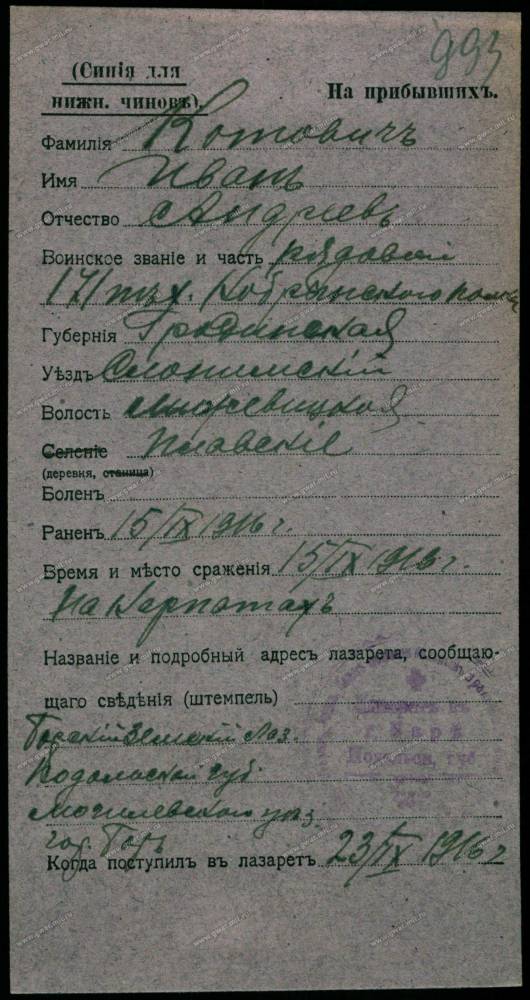 993
(Синія для
нижн. чиновъ).
На прибывшихъ.
Фамилія Котовичъ
Имя Иванъ
Отчество Андреевъ
Воинское званіе и часть рядовой
171 пѣх. Кобринского полка
Губернія Гродненская
Уѣздъ Слонимскій
Волость
Селеніе
(деревня, станица)
Боленъ
Раненъ 15/IX 1916 г.
Время и мѣсто сраженія 15/IX 1916 г.
На Карпатахъ
Названіе и подробный адресъ лазарета, сообщаю-
щаго свѣдѣнія (штемпель)
Земскій Лаз.
Подольской губ.
Могилевского уѣз.
гор.
Когда поступилъ въ лазаретъ 23/IX 1916 г
г. Яарѣ
Подольск. губ.
www.gwar.mil.ru